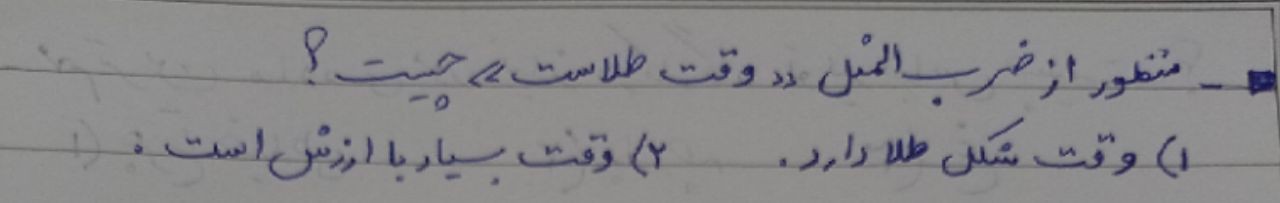 - منظور از ضرب المثل «وقت طلاست» چیست؟
۱) وقت شکل طلا دارد. ۲) وقت بسیار با ارزش است.